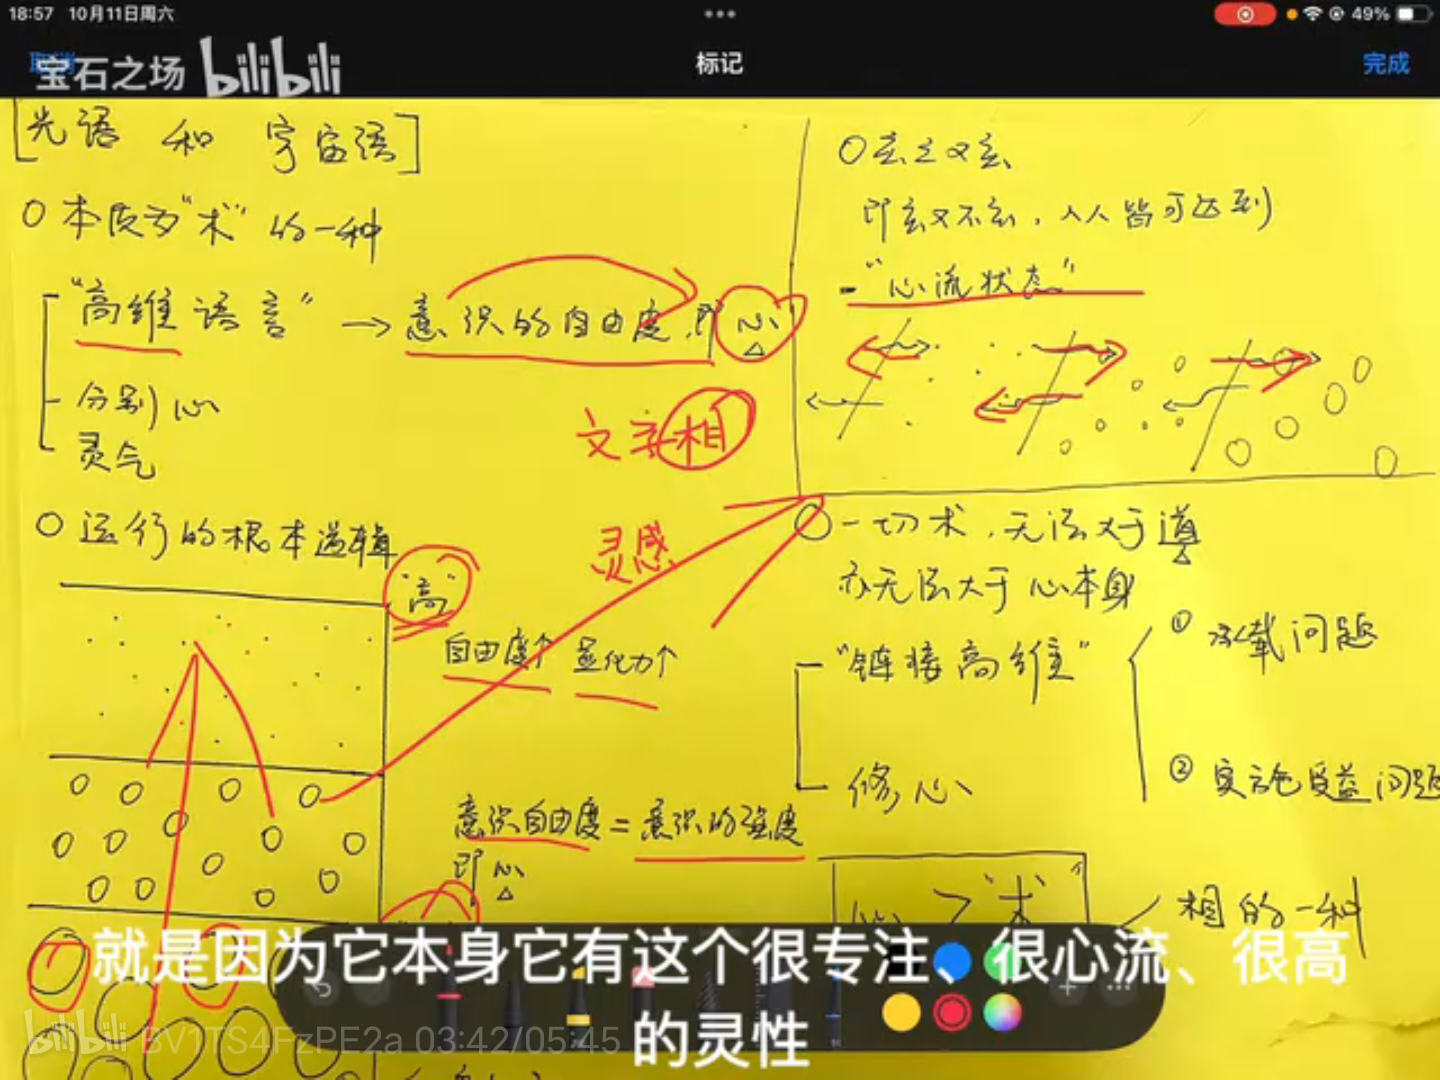 18:57 10月11日周六
49%
宝石之场 bilibili
标记
完成
[光语 和 宇宙语]
本质为"术"的一种
"高维语言" → 意识的自由度，即心
分别心
灵气
文字相
运行的根本逻辑
"高"
灵感
自由度↑ 显化力↑
意识自由度 = 意识的强度
即心
玄之又玄
即玄又不玄，人人皆可达到
-"心流状态"
一切术，无法大于道
亦无法大于心本身
"链接高维"
修心
① 承载问题
② 实施受益问题
心 > "术"
相的一种
就是因为它本身它有这个很专注、很心流、很高
的灵性
bilibili BV1TS4FzPE2a 03:42/05:45